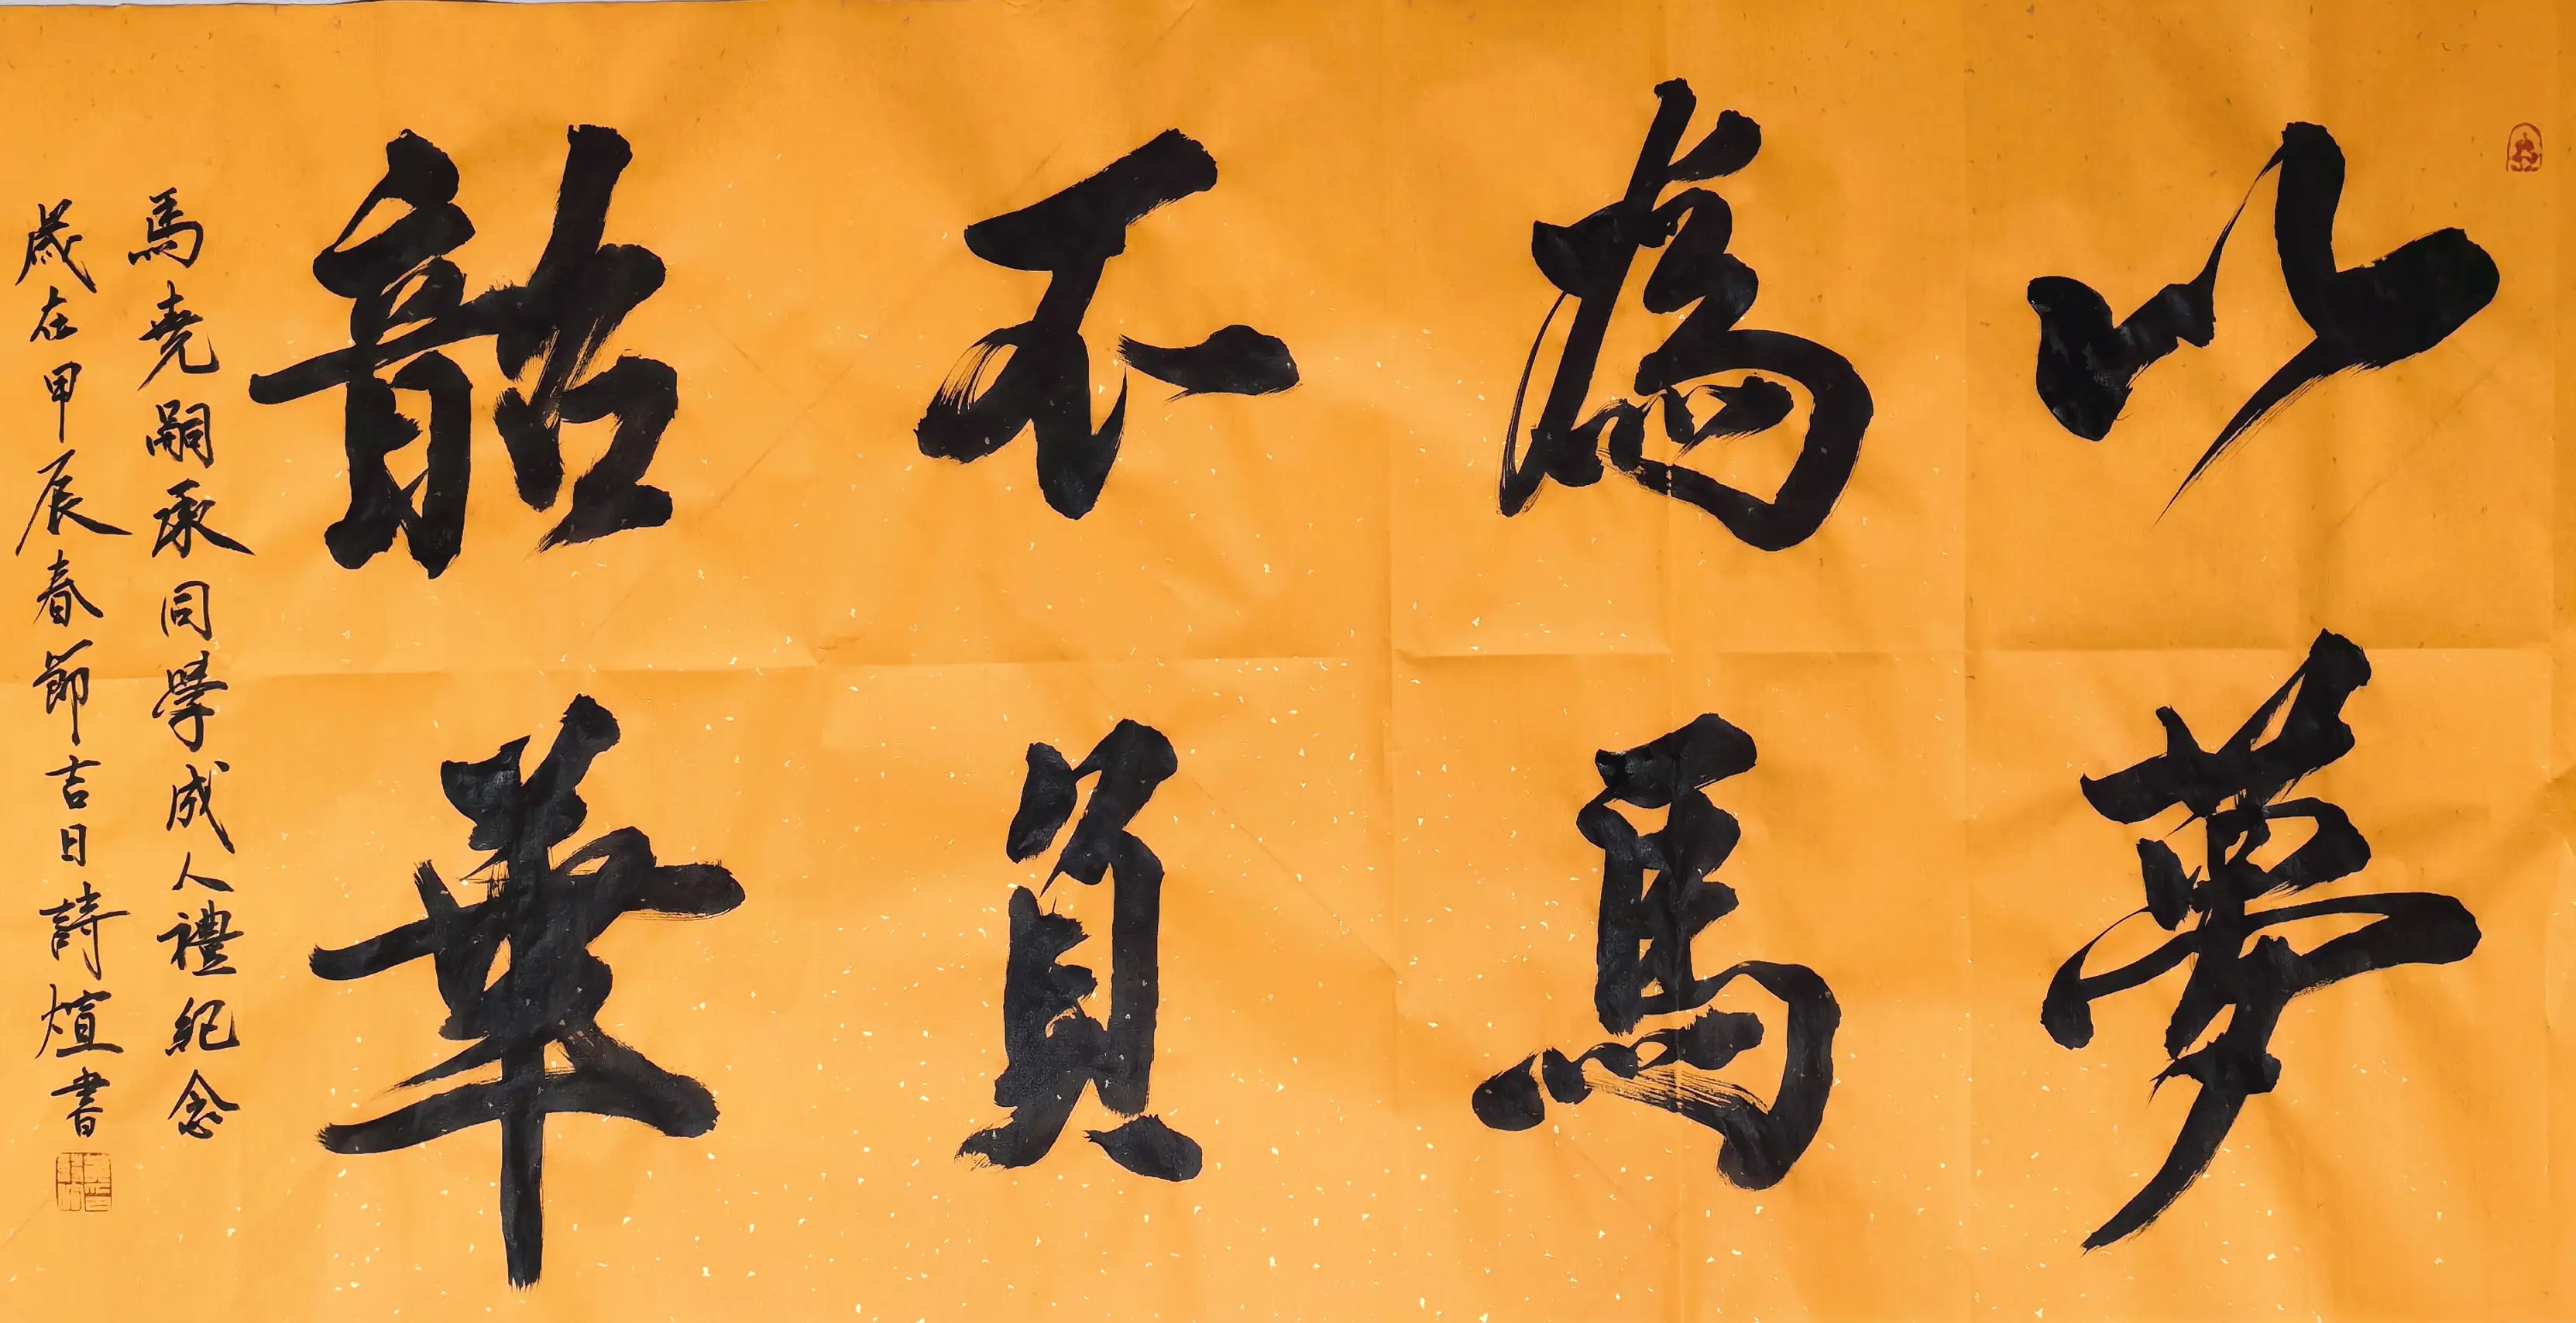 以夢
為馬
不負
韶華
馬堯嗣承同學成人禮紀念
歲在甲辰春節吉日詩煊書